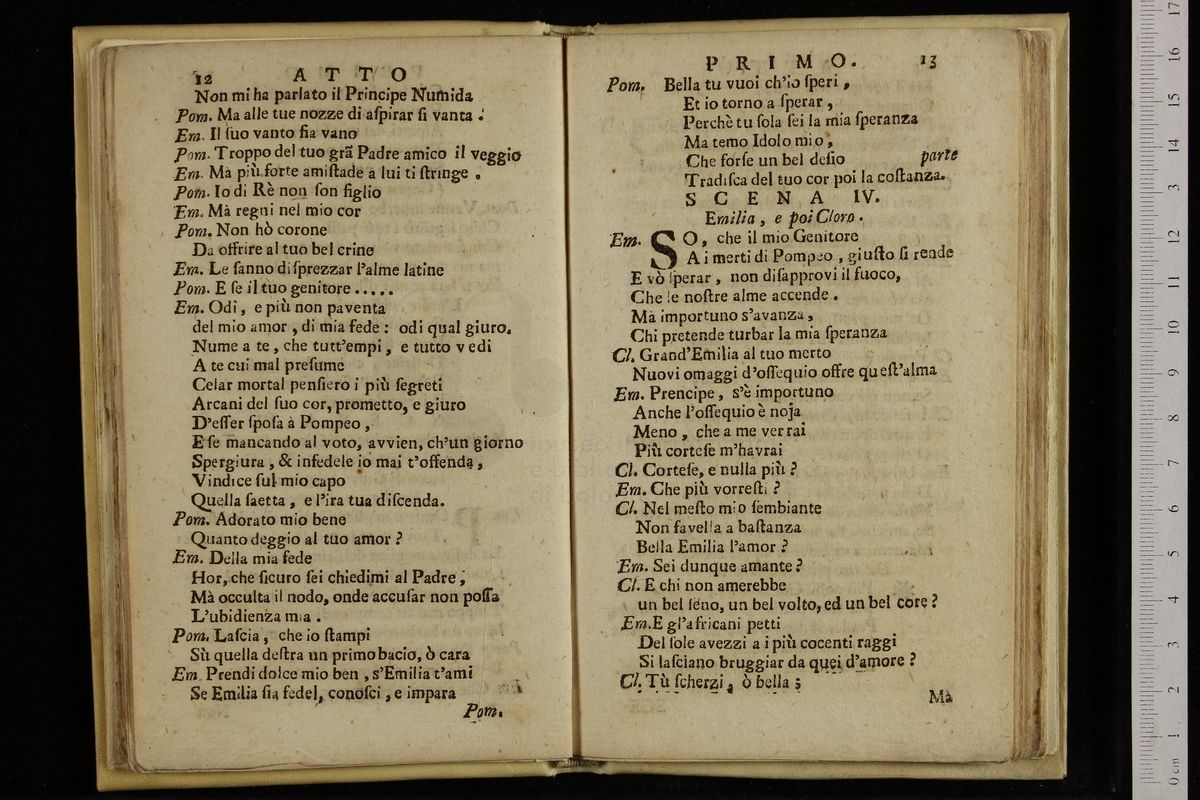 12 ATTO
Non mi ha parlato il Principe Numida
Pom. Ma alle tue nozze di aſpirar ſi vanta.
Em. Il ſuo vanto ſia vano
Pom. Troppo del tuo grã Padre amico il veggio
Em. Mà più forte amiſtade a lui ti ſtringe.
Pom. Io di Rè non ſon figlio
Em. Mà regni nel mio cor
Pom. Non hò corone
Da offrire al tuo bel crine
Em. Le ſanno diſprezzar l'alme latine
Pom. E ſe il tuo genitore.....
Em. Odi, e più non paventa
del mio amor, di mia fede: odi qual giuro.
Nume a te, che tutt'empi, e tutto vedi
A te cui mal preſume
Celar mortal penſiero i più ſegreti
Arcani del ſuo cor, prometto, e giuro
D'eſſer ſpoſa à Pompeo,
E ſe mancando al voto, avvien, ch'un giorno
Spergiura, & infedele io mai t'offenda,
Vindice ſul mio capo
Quella ſaetta, e l'ira tua diſcenda.
Pom. Adorato mio bene
Quanto deggio al tuo amor?
Em. Della mia fede
Hor, che ſicuro ſei chiedimi al Padre;
Mà occulta il nodo, onde accuſar non poſſa
L'ubidienza mia.
Pom. Laſcia, che io ſtampi
Sù quella deſtra un primo bacio, ò cara
Em. Prendi dolce mio ben, s'Emilia t'ami
Se Emilia ſia fedel, conoſci, e impara
Pom.
PRIMO. 13
Pom. Bella tu vuoi ch'io ſperi,
Et io torno a ſperar,
Perchè tu ſola ſei la mia ſperanza
Ma temo Idolo mio,
Che forſe un bel deſio parte
Tradiſca del tuo cor poi la coſtanza.
SCENA IV.
Emilia, e poi Cloro.
Em. SO, che il mio Genitore
A i merti di Pompeo, giuſto ſi rende
E vò ſperar, non diſapprovi il fuoco,
Che le noſtre alme accende.
Mà importuno s'avanza,
Chi pretende turbar la mia ſperanza
Cl. Grand'Emilia al tuo merto
Nuovi omaggi d'oſſequio offre queſt'alma
Em. Prencipe, s'è importuno
Anche l'oſſequio è noja
Meno, che a me verrai
Più corteſe m'havrai
Cl. Corteſe, e nulla più?
Em. Che più vorreſti?
Cl. Nel meſto mio ſembiante
Non favella a baſtanza
Bella Emilia l'amor?
Em. Sei dunque amante?
Cl. E chi non amerebbe
un bel ſeno, un bel volto, ed un bel core?
Em. E gl'africani petti
Del ſole avezzi a i più cocenti raggi
Si laſciano bruggiar da quei d'amore?
Cl. Tù ſcherzi, ò bella;
Mà